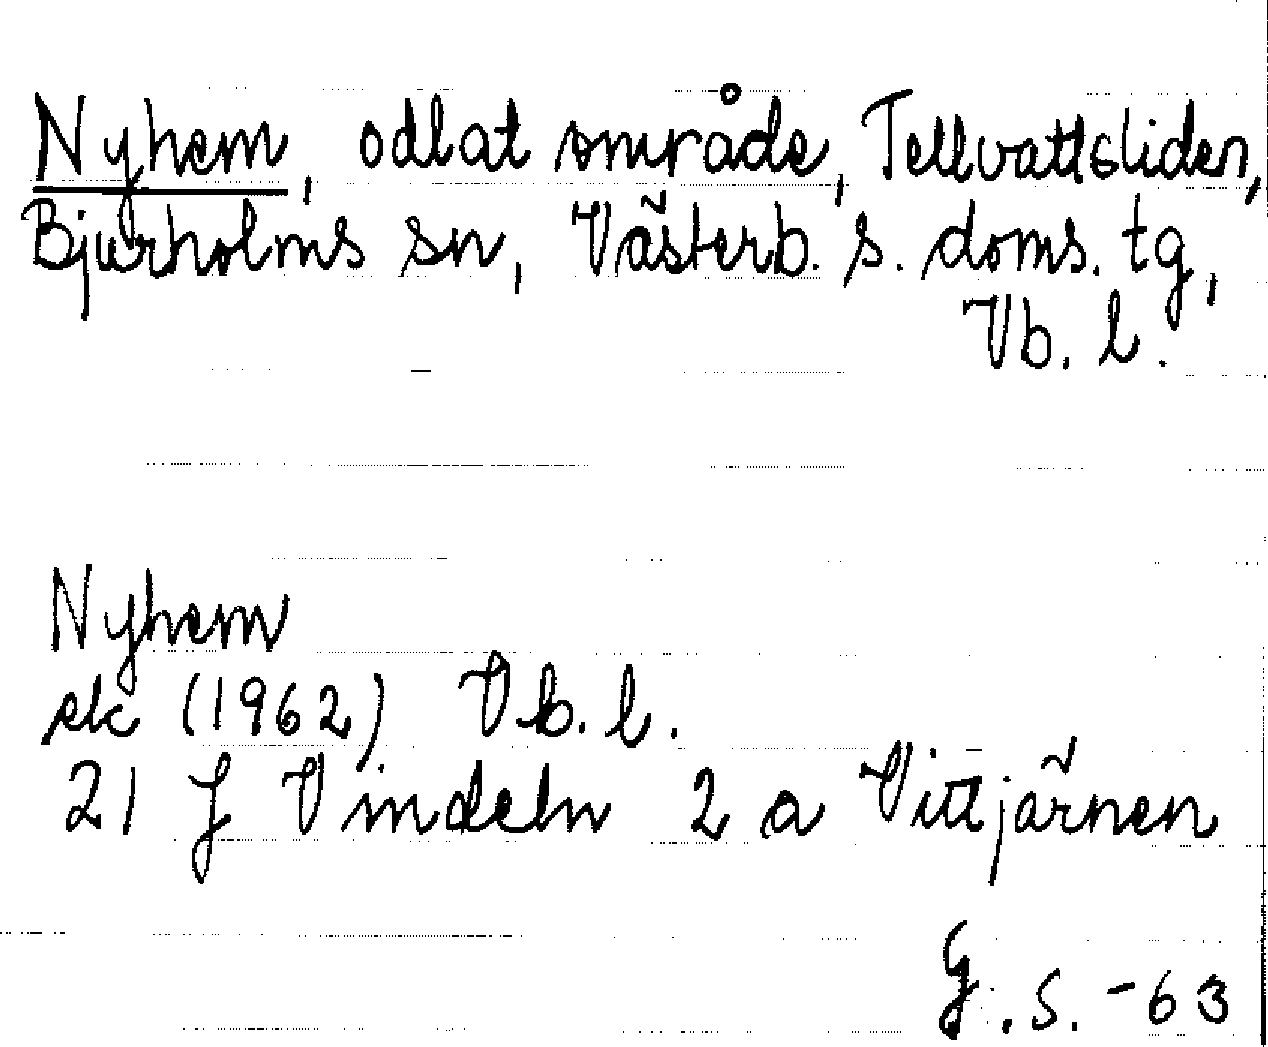 Nyhem, odlat område, Tellvattsliden,
Bjurholms sn, Västerb. s. doms. tg,
Vb. l.
Nyhem
ek (1962) Vb. l.
21 J Vindeln 2 a Vittjärnen
G. S. -63